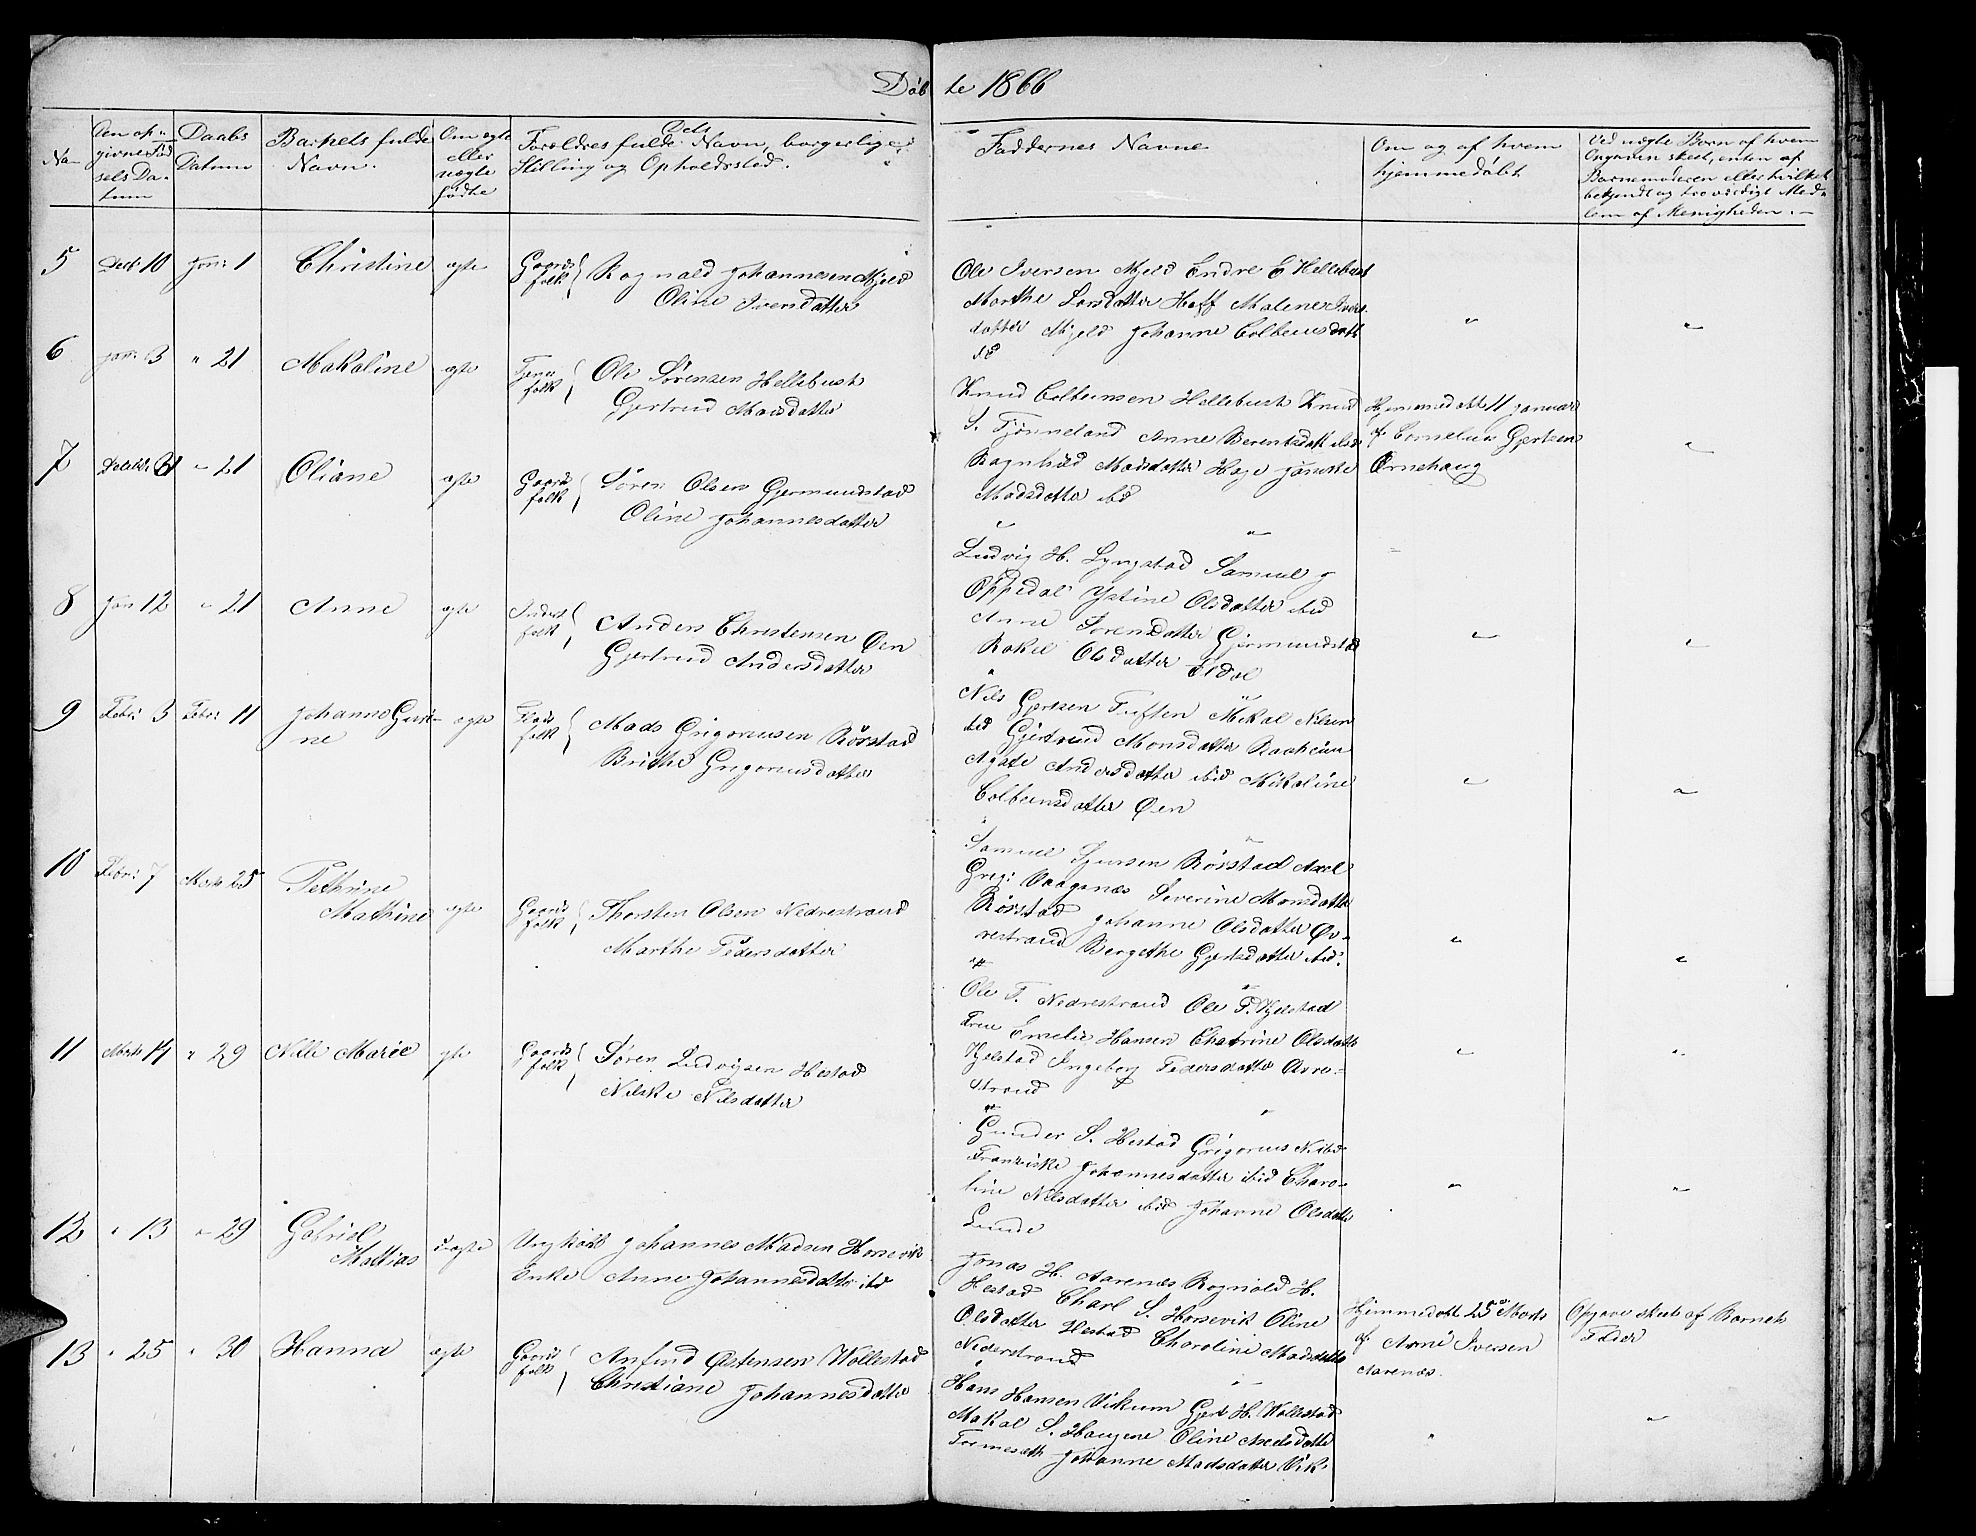 Døbte 1866
No
Den opgivne Fødsels Datum
Daabs Datum
Barnets fulde Navn.
Om ægte eller uægte fødte
Forældres fulde Navn, borgerlige Stilling og Opholdssted.
Faddernes Navne
Om og af hvem hjemmedøbt
Ved uægte Børn af hvem Angivelsen skeet, enten af Barnemoderen eller hvilket bekjendt og troværdigt Medlem af Menigheden. –
5 Decbr 10 Janr 1 Christine ægte Gaardfolk Rognald Johannesen Mjeld
Oline Iversdatter
Ole Iversen Mjeld Endre E Hellebust
Marthe Larsdatter Hoff Malene Ivers-
datter Mjeld Johanne Colbeinsdatt
6 Janr 3 " 21 Makaline ægte folk Ole Sørensen Hellebust
Gjertrud Monsdatter
Knud Colbeinsen Hellebust Knud
S. Tjønneland Anne Berentsdatt ibid
Ragnhild Madsdatter Hage
Madsdatter ibid
Hjemmedøbt 11 Januar
af Cornelius Gjertsen
Ørnehaug
7 " 21 Oliane ægte Gaardfolk Søren Olsen Gjermundstad
Oline Johannesdatter
Ludvig H. Lyngstad Samuel J
Oppedal Olsdatter ibid
Anne Sørensdatter Gjermundstad
Rakel Olsdatter Eldal
8 Jan 12 " 21 Anne ægte Inderstfolk Anders Christensen Øen
Gjertrud Andersdatter
Nils Gjertsen Tuften Mikal Nilsen
ibid Gjertrud Monsdatter
Agate Andersdatter ibid Mikaline
Colbeinsdatter Øen
9 Febr: 3 Febr: 11 Johanne Guri-
ne
ægte Pladsfolk Mads Grigoriusen Rørstad
Brithe Gregoriusdatter
Samuel Sjursen Rørstad Axel
Greg: Vaagenæs Severine Monsdatter
Rørstad Johanne Olsdatter Øv-
restrand Bergethe Gjertsdatter ibid.
10 Febr: 7 Marts 25 Pethrine
Mathine ægte Gaardfolk Thorsten Olsen Nedrestrand
Marthe Pedersdatter
Ole T. Nedrestrand Ole P. Hjelstad
Fru Emelie Hansen Chatrine Olsdatt
Hjelstad Ingeborg Pedersdatter Øvre-
strand
11 Marts 14 " 29 Nille Marie ægte Gaardfolk Søren Ludvigsen Hestad
Nilske Nilsdatter
Gunder S. Hestad Grigorius N ibid
Franziske Johannesdatter ibid Charo-
line Nilsdatter ibid Johanne Olsdatter
Lunde
12 " 13 " 29 Gabriel
Mattias uægte Ungkarl Johannes Madsen Horsevik
Enke Anne Johannesdatter ibid
Jonas H. Aarenæs Rognald H.
Hestad Charl S. Horsevik Oline
Olsdatter Hestad Charoline Madsdatter
Nederstrand
Hjemmedøbt 25de Marts
af Arne Iversen
Aarenæs.
Opgave skeet af Barnets
Fader
13 " 25 " 30 Hanna ægte Gaardfolk Anfind Østensen Wollestad
Christiane Johannesdatter
Hans Hansen Vikum Gjert H. Wollestad
Makal S. Haugene Oline Axelsdatter
Johanne Madsdatter Vik